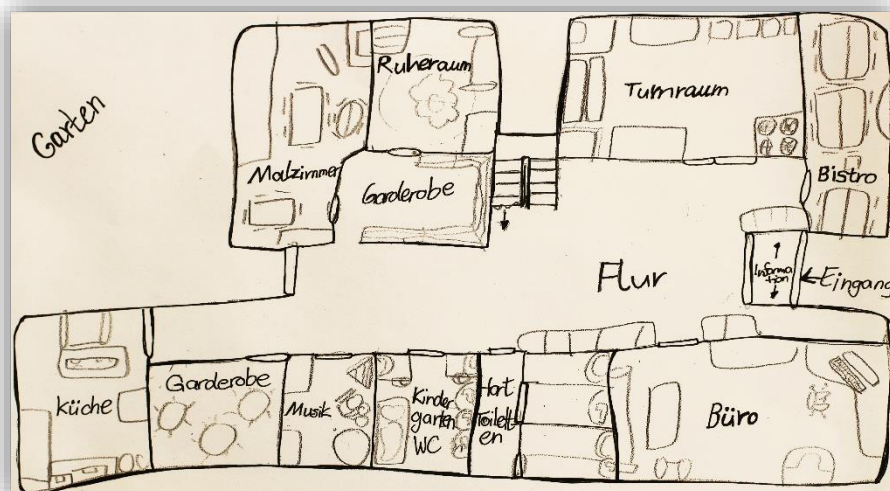 Garten
Ruheraum
Turnraum
Malzimmer
Garderobe
Bistro
Flur
Informa
tion
Eingang
Küche
Garderobe
Musik
Kinder
garten
WC
Hort
Toilett
en
Büro